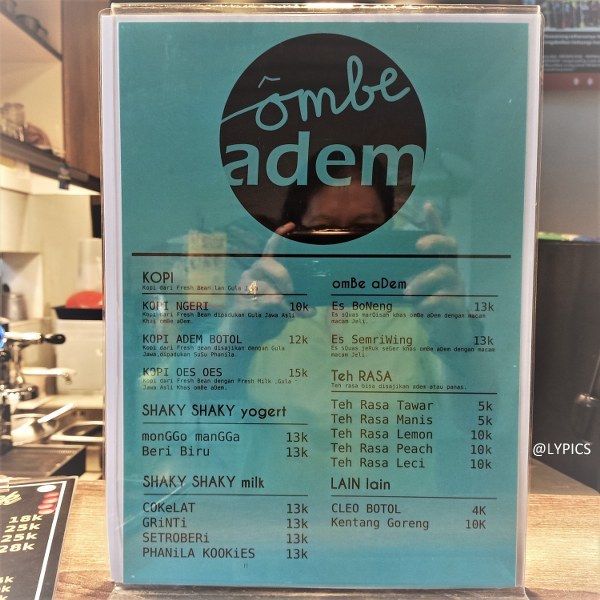 ômbe
adem
KOPI
Kopi dari Fresh Bean lan Gula Jawa
KOPI NGERI 10k
Kopi dari Fresh Bean dipadukan Gula Jawa Asli
Khas omBe aDem.
KOPI ADEM BOTOL 12k
Kopi dari Fresh Bean disajikan dengan Gula
Jawa,dipadukan Susu Phanila.
KOPI OES OES 15k
Kopi dari Fresh Bean dengan Fresh Milk ,Gula
Jawa Asli Khas omBe aDem.
SHAKY SHAKY yogert
monGGo manGGa 13k
Beri Biru 13k
SHAKY SHAKY milk
COKeLAT 13k
GRiNTi 13k
SETROBERi 13k
PHANiLA KOOKiES 13k
omBe aDem
Es BoNeng 13k
Es aDuas marQisah khas omBe aDem dengan macam
macam Jeli.
Es SemriWing 13k
Es aDuas jeRuk seGer khas omBe aDem dengan macam
macam Jeli.
Teh RASA
Teh rasa bisa disajikan adem atau panas.
Teh Rasa Tawar 5k
Teh Rasa Manis 5k
Teh Rasa Lemon 10k
Teh Rasa Peach 10k
Teh Rasa Leci 10k
LAIN lain
CLEO BOTOL 4K
Kentang Goreng 10K
@LYPICS
18k
25k
25k
28k